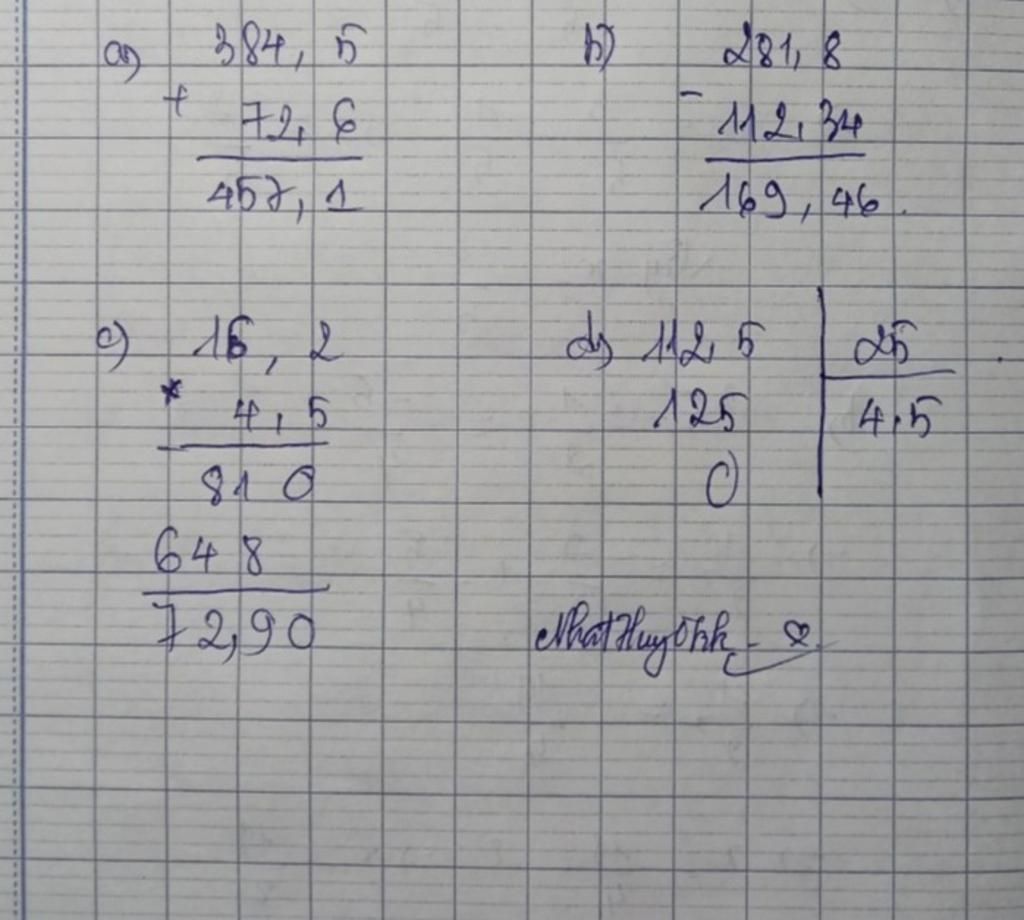 a) 384,5
+ 72,6
457,1
b) 281,8
- 112,34
169,46.
c) 16,2
* 4,5
810
648
72,90
d) 112,5 25
125 4,5
0